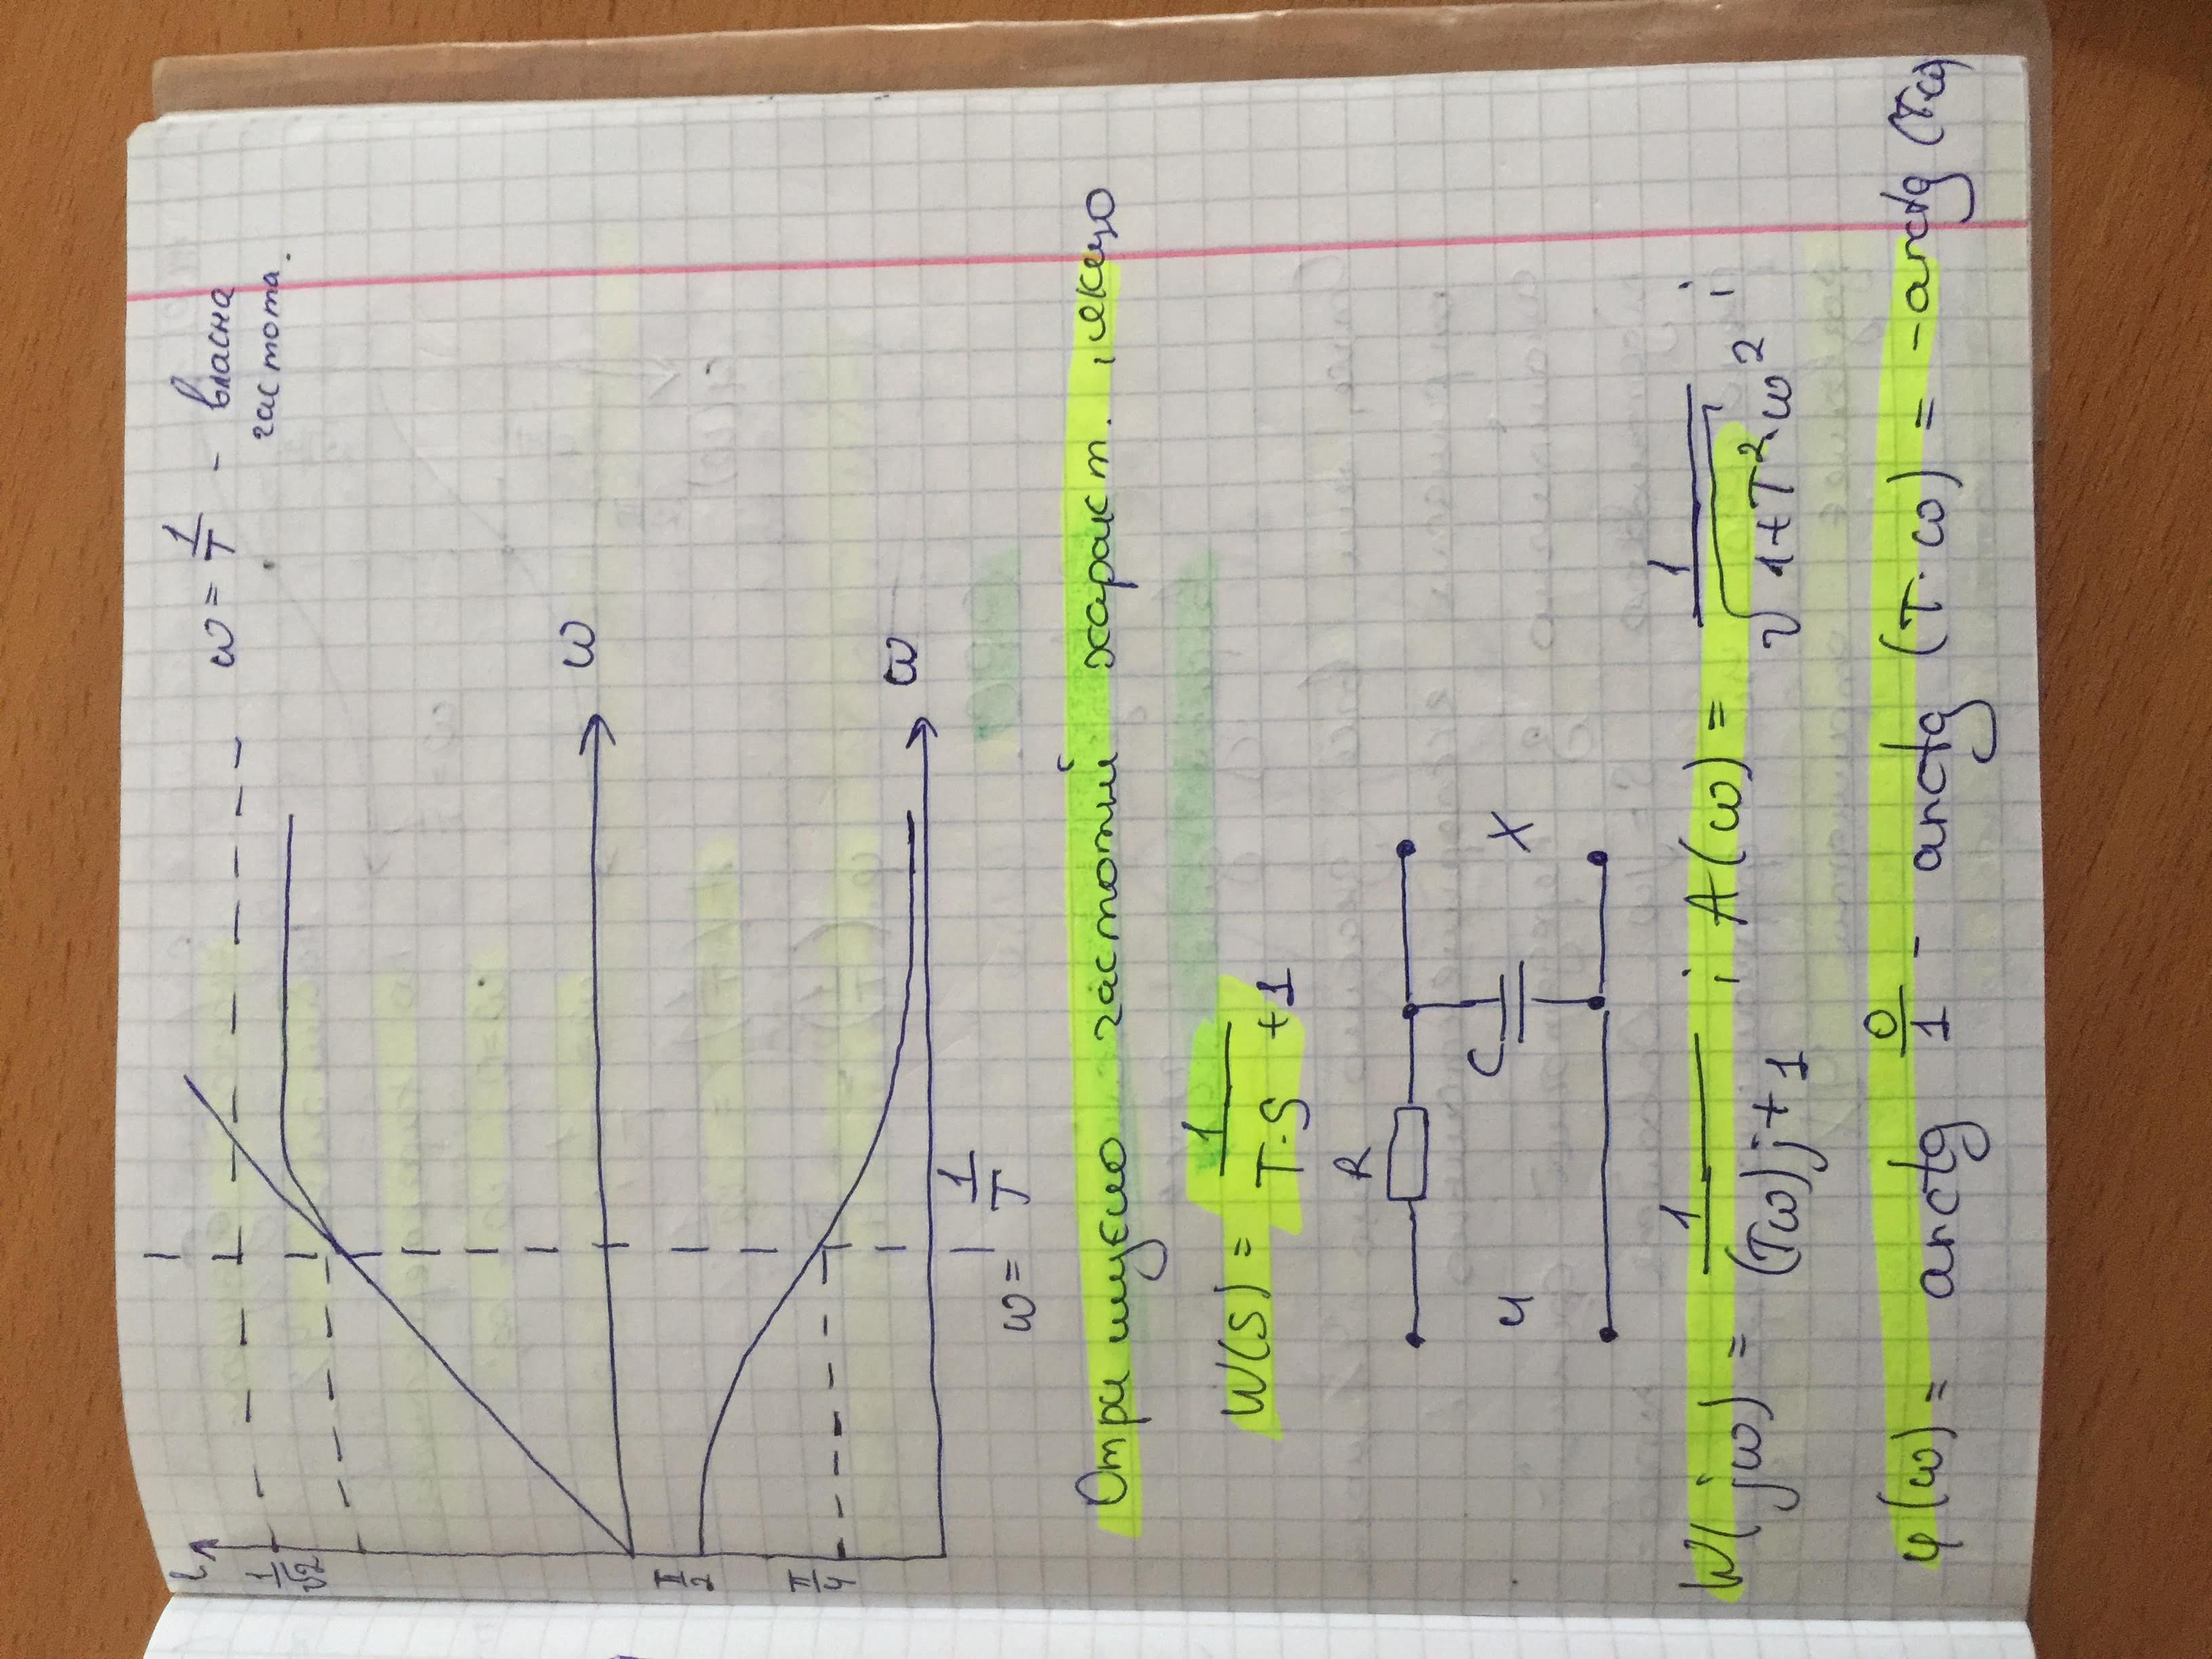 L
1/√2
ω = 1/T - власна
частота.
ω
π/2
π/4
ω
ω = 1/T
Отримуємо частотні характ., якщо
W(S) = 1/(T·S +1)
R
C
U
X
W(jω) = 1/((Tω)j+1) ; A(ω) = 1/√(1+T²·ω²) ;
φ(ω) = arctg 0/1 - arctg (T·ω) = -arctg (T·ω)